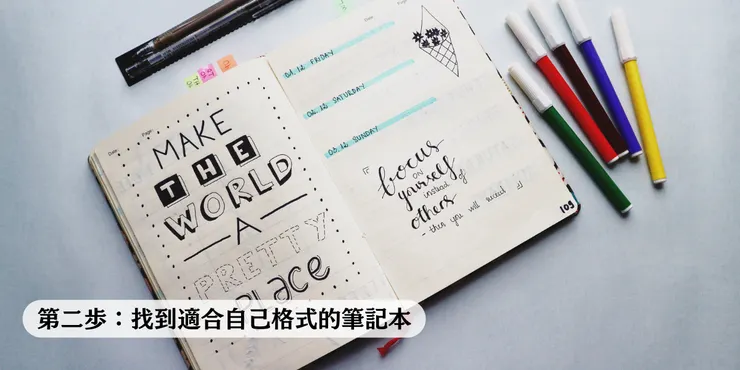 Date:
Page:
MAKE
THE
WORLD
A
PRETTY
PLace
Date:
Page:
01.12 FRIDAY
02.12 SATURDAY
03.12 SUNDAY
focus
on
yourself
instead of
others
- then you will succeed :)
109
第二歩：找到適合自己格式的筆記本